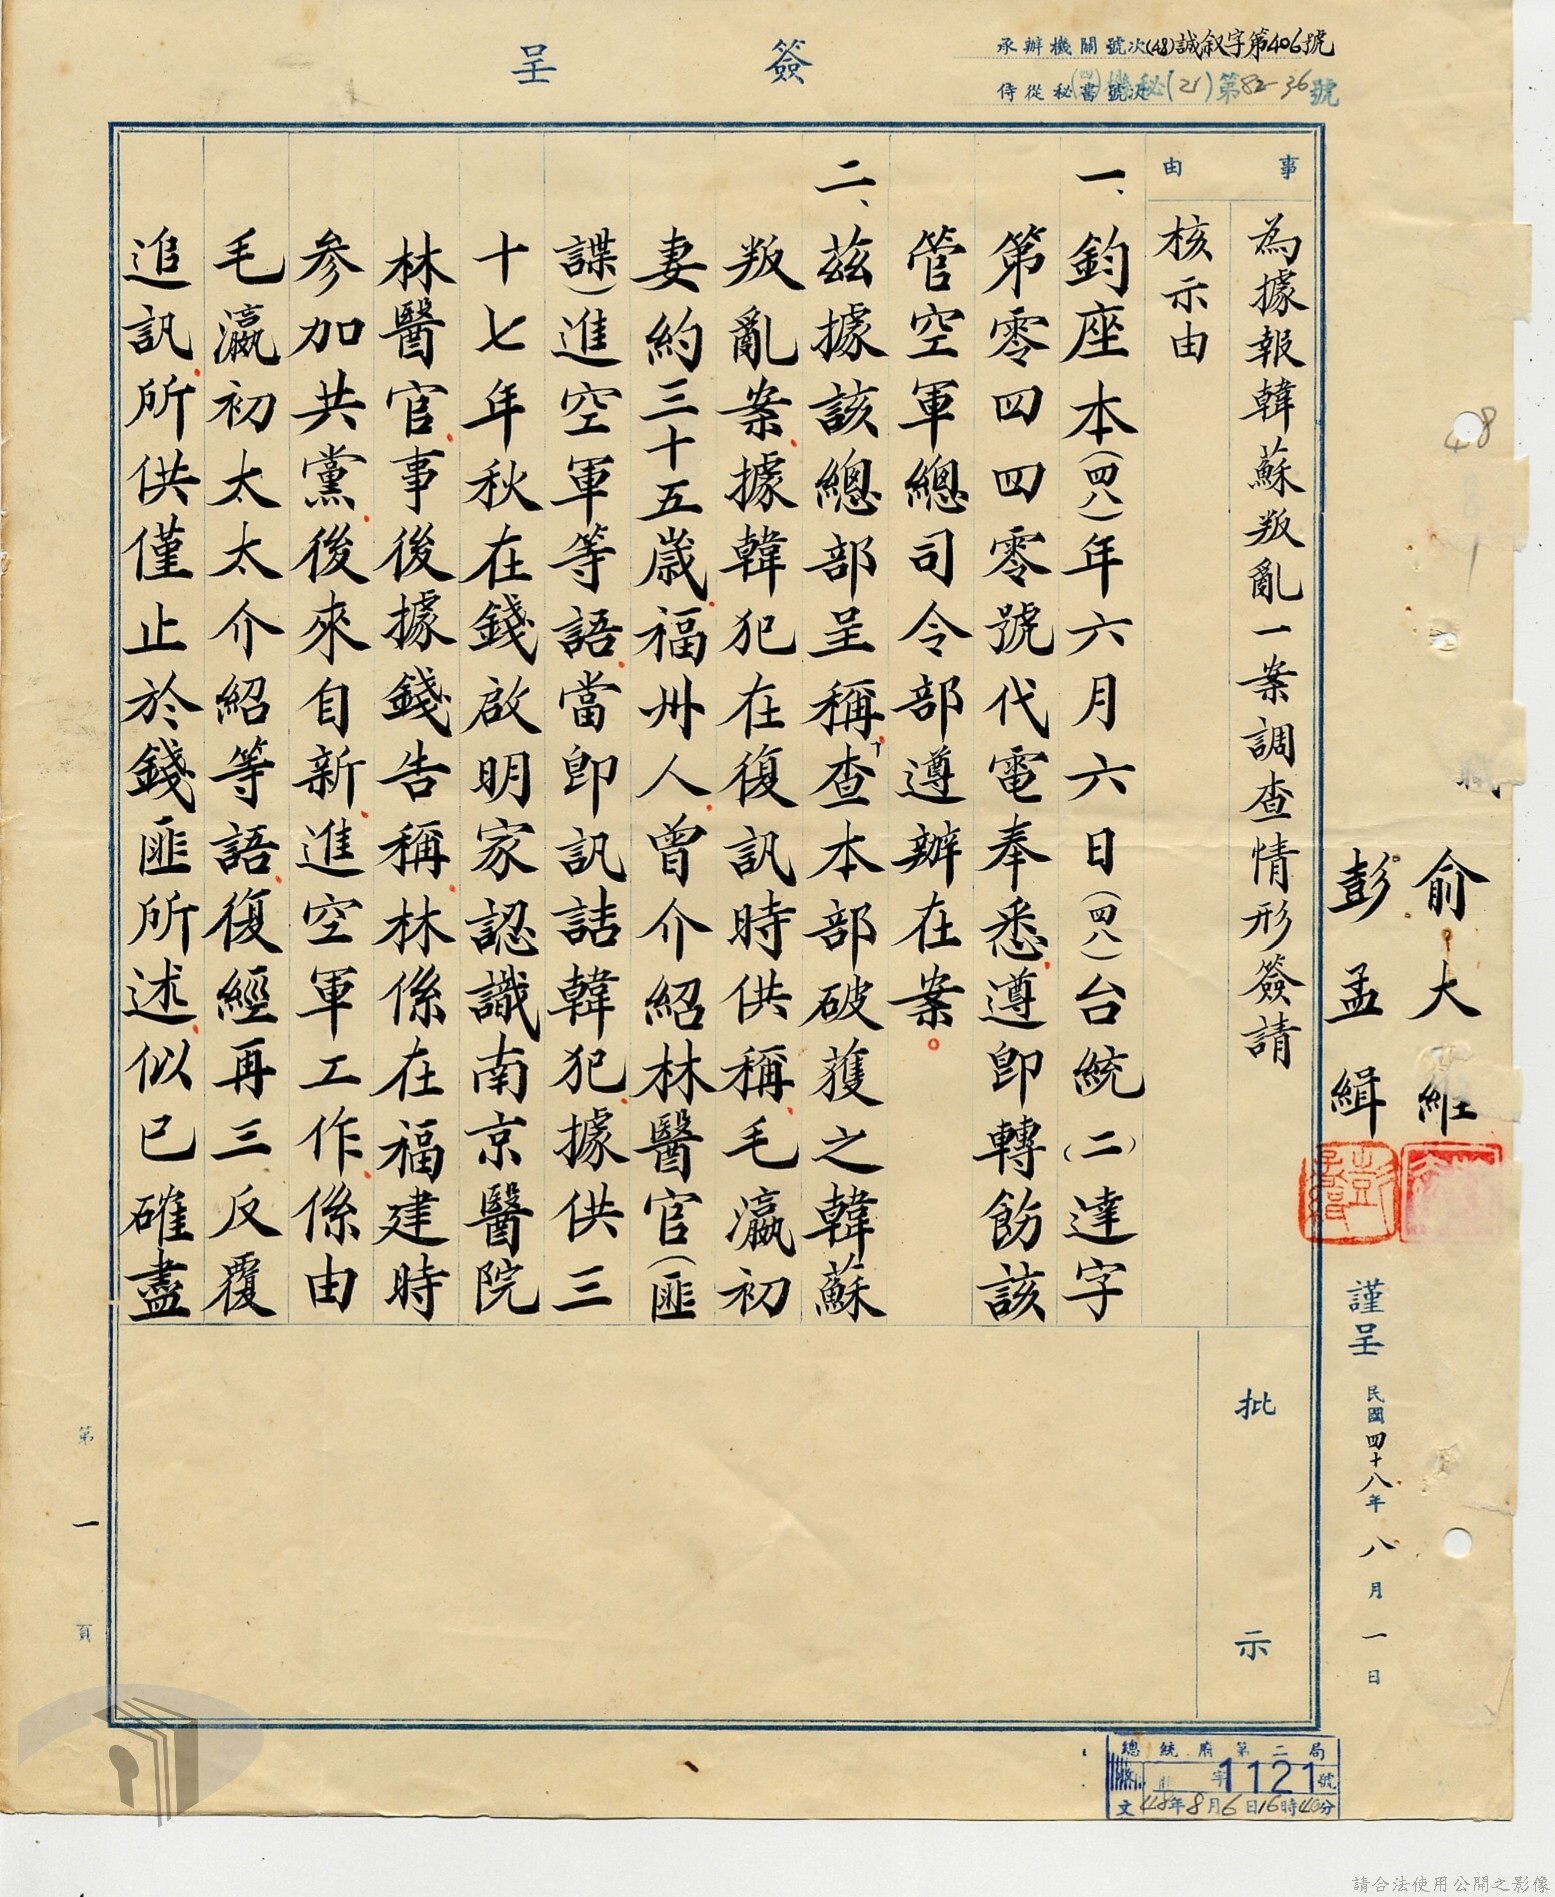 簽呈
承辦機關號次(48)誠叙字第406號
侍從秘書號次機秘(21)第82-36號
事由
為據報韓蘇叛亂一案調查情形簽請
核示由
一、鈞座本(四八)年六月六日(四八)台統(二)達字
第零四四零號代電奉悉遵即轉飭該
管空軍總司令部遵辦在案。
二、茲據該總部呈稱「查本部破獲之韓蘇
叛亂案據韓犯在復訊時供稱毛瀛初
妻約三十五歲福州人曾介紹林醫官(匪
諜)進空軍等語當即訊詰韓犯據供三
十七年秋在錢啟明家認識南京醫院
林醫官事後據錢告稱林係在福建時
參加共黨後來自新進空軍工作係由
毛瀛初太太介紹等語復經再三反覆
追訊所供僅止於錢匪所述似已確盡
批示
職
俞大維
彭孟緝
謹呈
民國四十八年八月一日
48
第一頁
總統府第二局
字1121號
文48年8月6日16時40分
請合法使用公開之影像